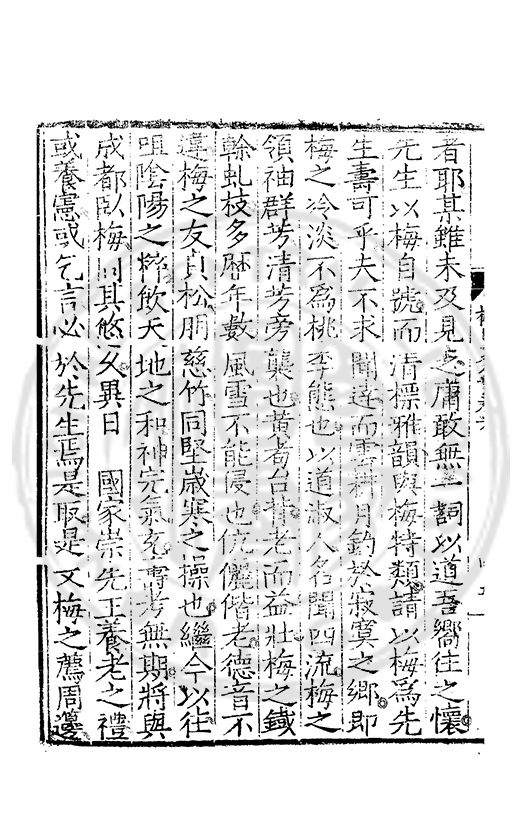 者耶某雖未及見之庸敢無一詞以道吾嚮往之懷
先生以梅自號而清標雅韻與梅特類請以梅爲先
生壽可乎夫不求聞達而雲耕月釣於寂寞之鄉即
梅之冷淡不爲桃李態也以道淑人名聞四流梅之
領袖群芳清芳旁襲也黄耇台背老而益壯梅之鐵
榦虬枝多歷年數風雪不能侵也伉儷偕老德音不
違梅之友貞松朋慈竹同堅歲寒之操也繼今以往
咀陰陽之粹飲天地之和神完氣玄壽考無期將與
成都臥梅同其悠久異日 國家崇先王養老之禮
或養憲或乞言必於先生焉是取是又梅之薦周邊